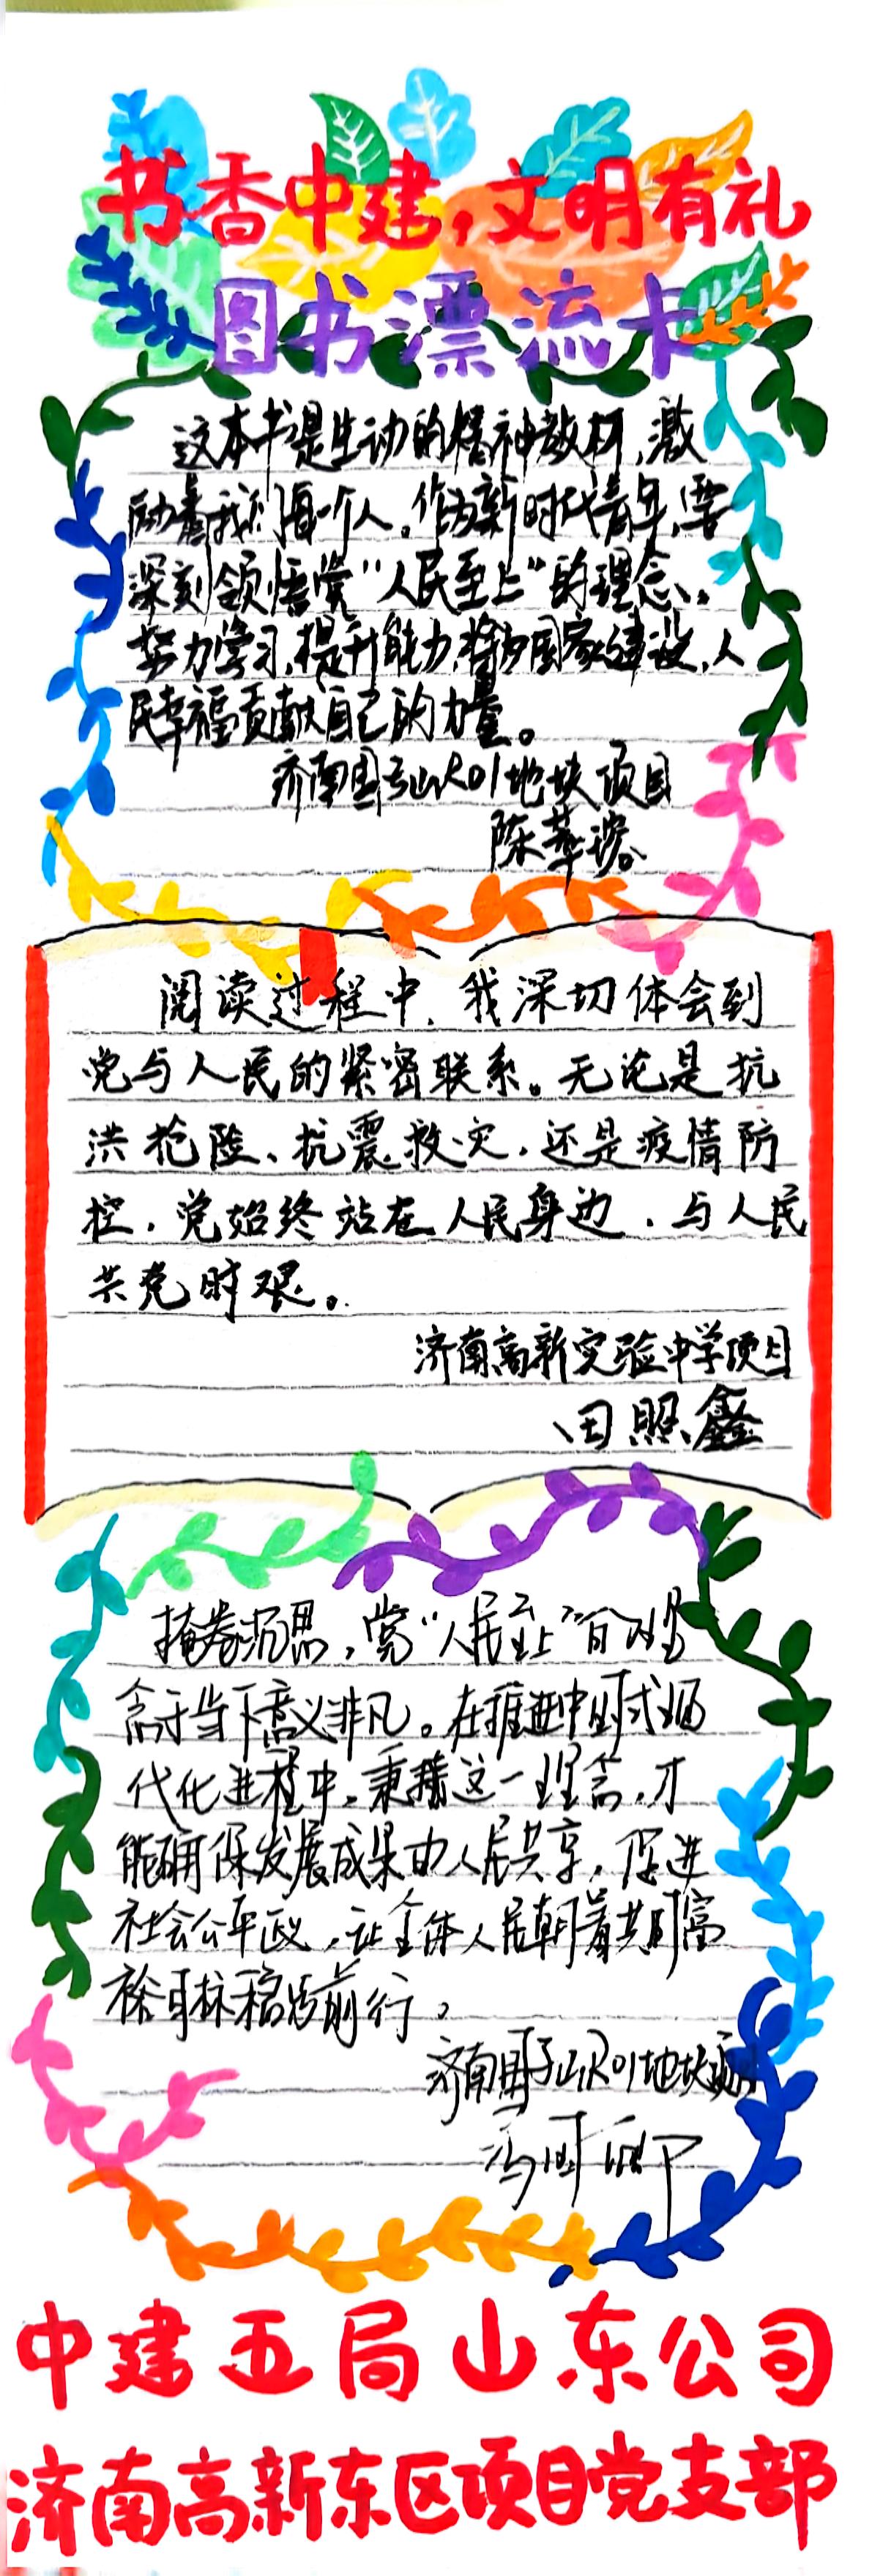 书香中建，文明有礼
图书漂流卡
这本书是生动的精神教材，激
励着我们每一个人。作为新时代青年，需
深刻领悟党“人民至上”的理念。
努力学习，提升能力，将为国家建设，人
民幸福贡献自己的力量。
济南围子山R01地块项目
陈華
阅读过程中，我深切体会到
党与人民的紧密联系。无论是抗
洪抢险、抗震救灾，还是疫情防
控，党始终站在人民身边，与人民
共克时艰。
济南高新实验中学项目
田照鑫
掩卷沉思，党“人民至上”的理
念于当下意义非凡。在推进中国式现
代化进程中，秉持这一理念，才
能确保发展成果由人民共享，促进
社会公平正义，让全体人民朝着共同富
裕目标稳步前行。
济南围子山R01地块项目
冯
中建五局山东公司
济南高新东区项目党支部